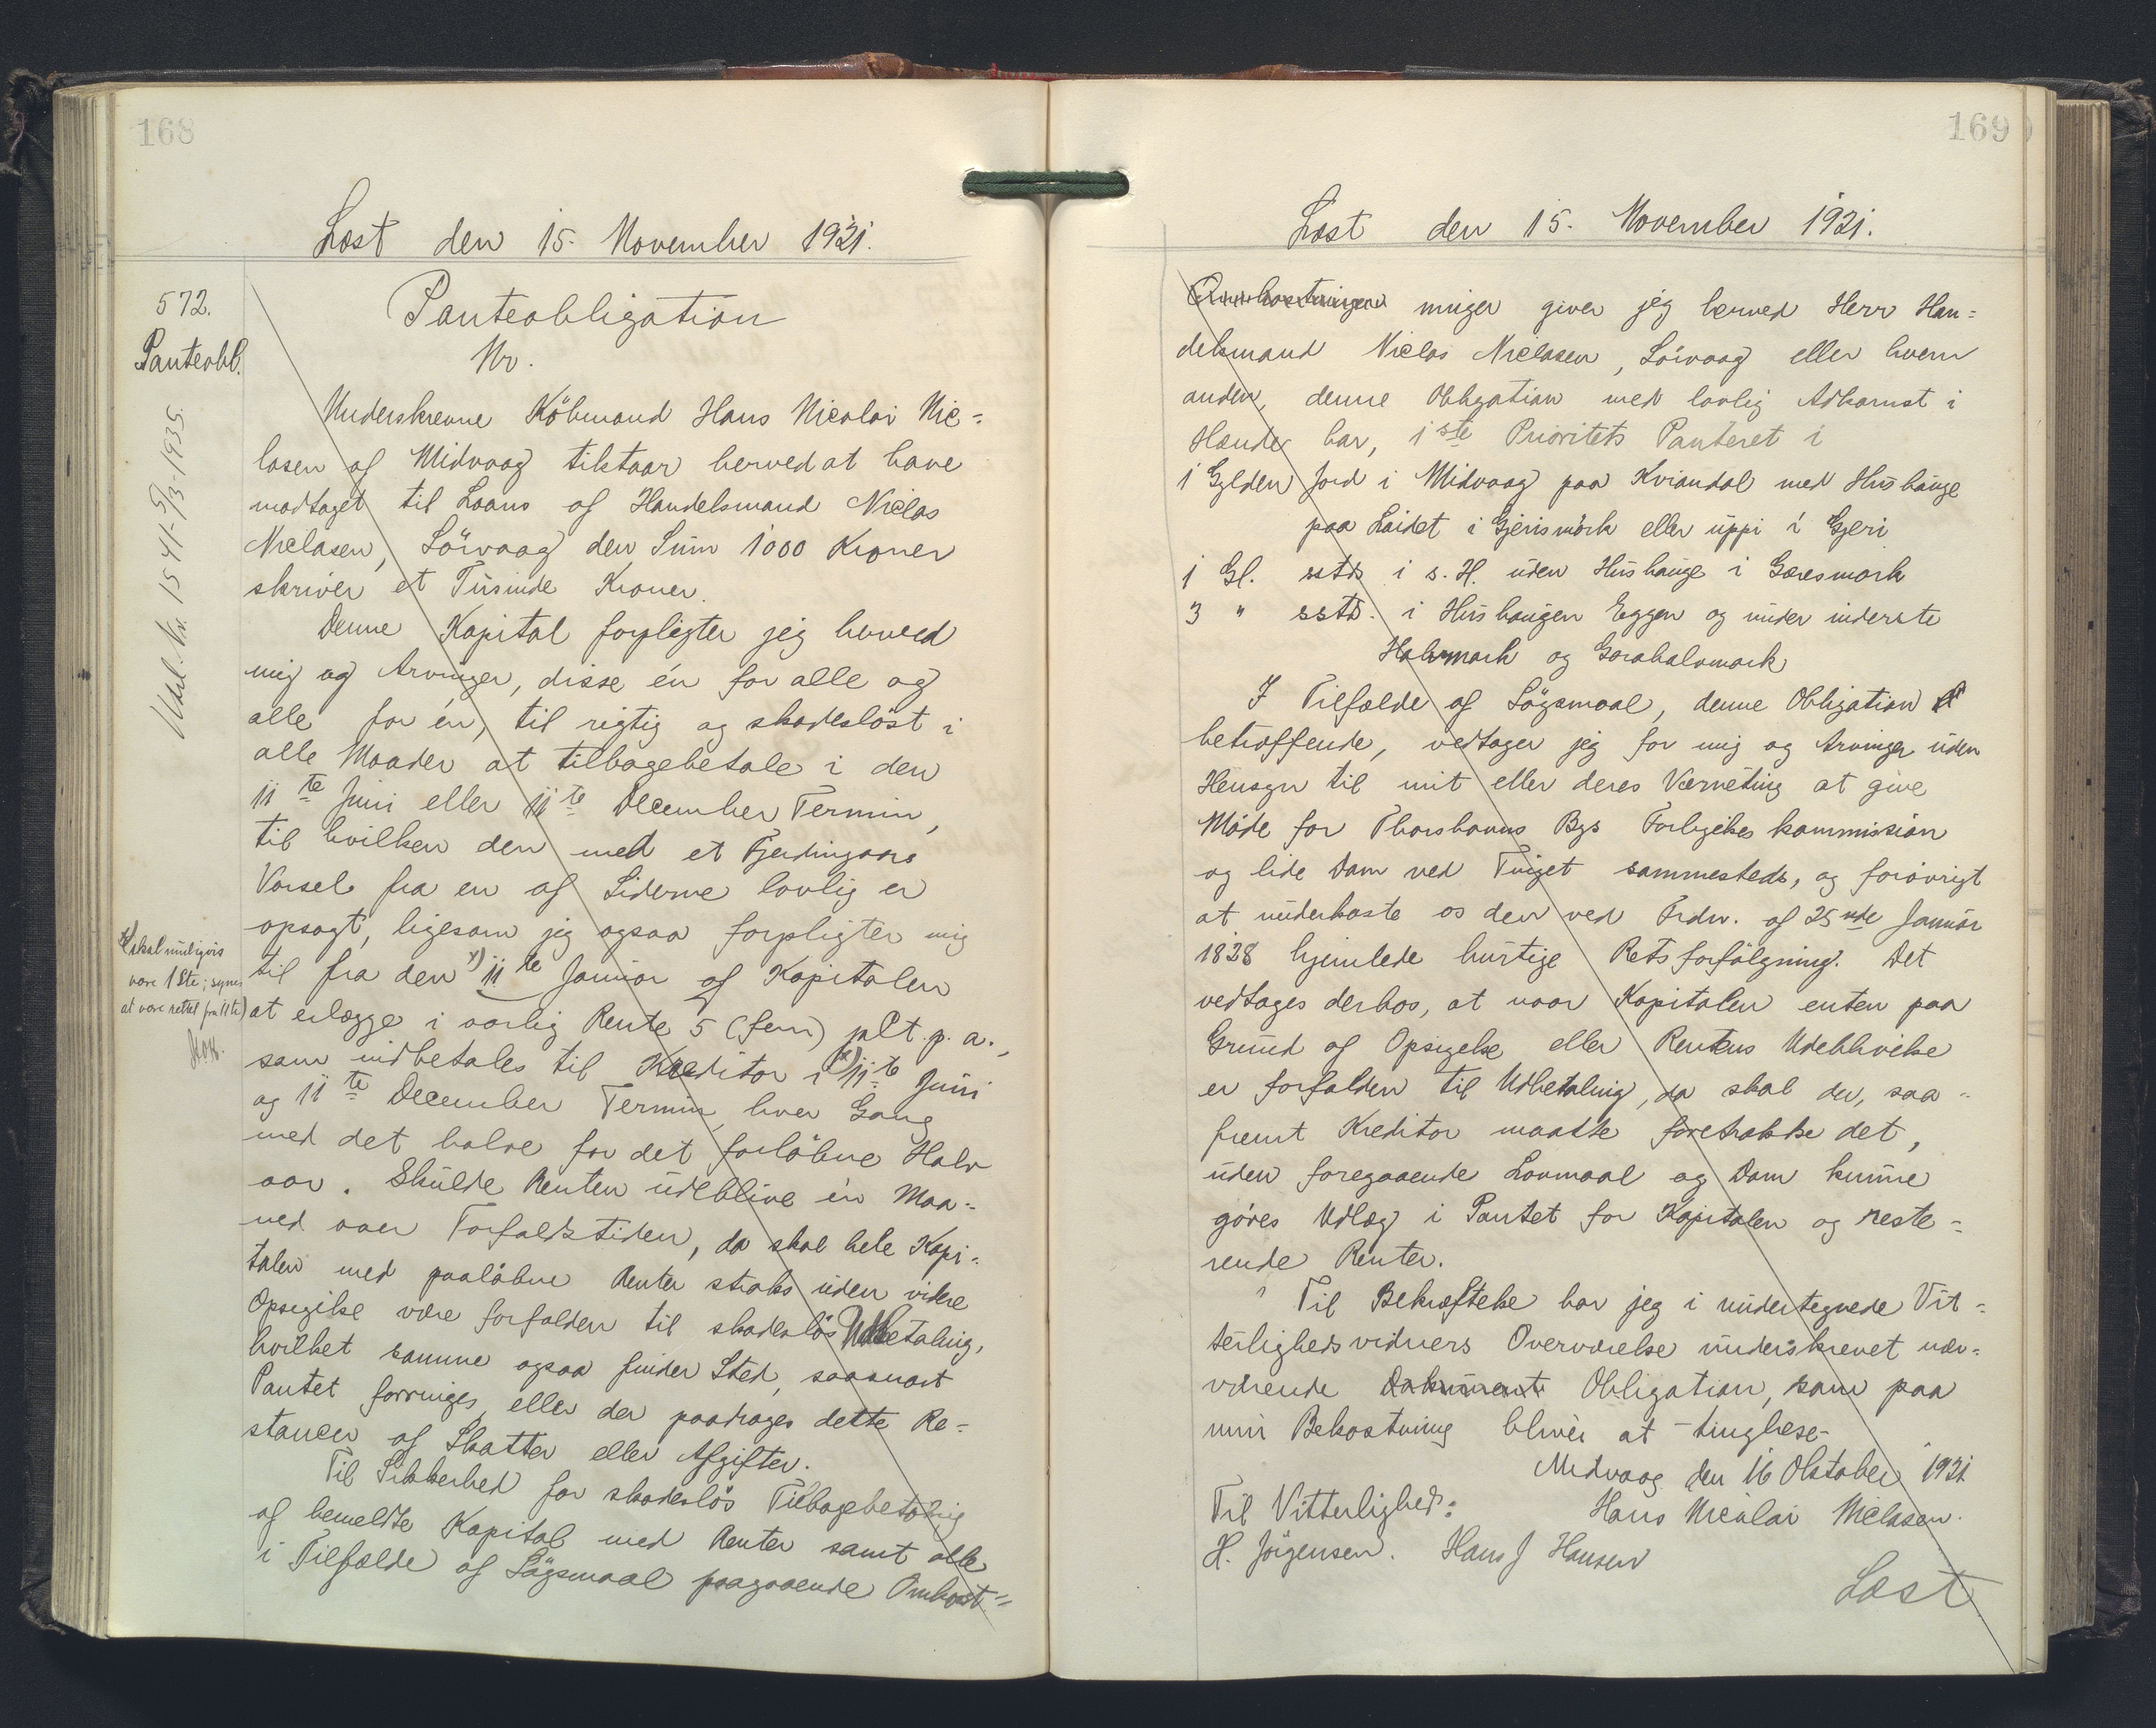 168
Læst den 15. November 1921.
572.
Panteobl.
Udsl. Nr. 1541-5/3-1935.
Panteobligation
Nr.
Underskrevne Köbmand Hans Nicolai Nic=
lasen af Midvaag tilstaar herved at have
modtaget til Laans af Handelsmand Niclas
Niclasen, Sörvaag den Sum 1000 Kroner
skriver et Tusinde Kroner.
Denne Kapital forpligter jeg herved
mig og Arvinger, disse én for alle og
alle for én, til rigtig og skadeslöst i
alle Maader at tilbagebetale i den
11te Juni eller 11te December Termin,
til hvilken den med et Fjerdingaars
Varsel fra en af Siderne lovlig er
opsagt, ligesom jeg ogsaa forpligter mig
til fra den x) 11te Januar af Kapitalen
at erlægge i aarlig Rente 5 (fem) pCt. p. a.,
x skal muligvis
være 1ste; synes
at være rettet fra 11te)
som indbetales til Kreditor i x) 11te Juni
og 11te December Termin, hver Gang
med det halve for det forløbne Halv
aar. Skulde Renten udeblive én Maa=
ned over Forfaldstiden, da skal hele Kapi=
talen med paaløbne Renter straks uden videre
Opsigelse være forfalden til skadeslös Udbetaling,
hvilket samme ogsaa finder Sted, saasnart
Pantet forringes, eller der paadrages dette Re=
stancer af Skatter eller Afgifter.
Til Sikkerhed for skadeslös Tilbagebetaling
af bemeldte Kapital med Renter samt alle
i Tilfælde af Sögsmaal paagaaende Omkost=
169
Læst den 15. November 1921.
Omkostningen ninger giver jeg herved Herr Han=
delsmand Niclas Niclasen, Sörvaag eller hvem
anden, denne Obligation med lovlig Adkomst i
Hænder har, 1ste Prioritets Panteret i
1 Gylden Jord i Midvaag paa Kviandal med Hushauge
paa Laidet i Gjerismörk eller uppi i Gjeri
1 Gl. sstds i s. H. uden Hushauge i Gæresmork
3 " sstds. i Hushaugen Eggen og under inderste
Halvmark og Garahalvmark
I Tilfælde af Sögsmaal, denne Obligation
betræffende, vedtager jeg for mig og Arvinger uden
Hensyn til mit eller deres Værneting at give
Möde for Thorshavns Bys Forligelses kommission
og lide Dom ved Tinget sammesteds, og forövrigt
at underkaste os den ved Frdn. af 25nde Januar
1828 hjemlede hurtige Retsforfölgning. Det
vedtages derhos, at naar Kapitalen enten paa
Grund af Opsigelse eller Rentens Udeblivelse
er forfalden til Udbetaling, da skal der, saa=
fremt Kreditor maatte foretrække det,
uden foregaaende Lovmaal og Dom kunne
göres Udlæg i Pantet for Kapitalen og reste=
rende Renter.
Til Bekræftelse har jeg i undertegnede Vit=
terligheds vidners Overværelse underskrevet nær=
værende Dokument Obligation, som paa
min Bekostning bliver at tinglæse-
Midvaag den 16 Oktober 1921
Til Vitterlighed:
Hans Nicolai Niclasen.
H. Jörgensen. Hans J Hansen
Læst